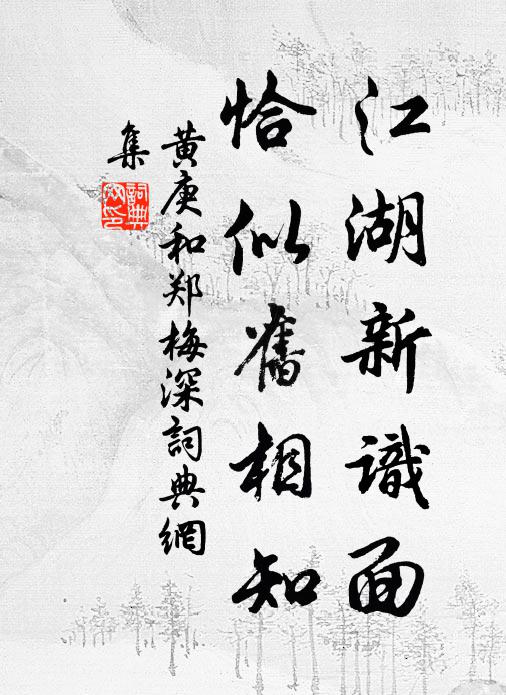 江湖新識面
恰似舊相知
黄庚和郑梅深詞典網
集
詞典
网印